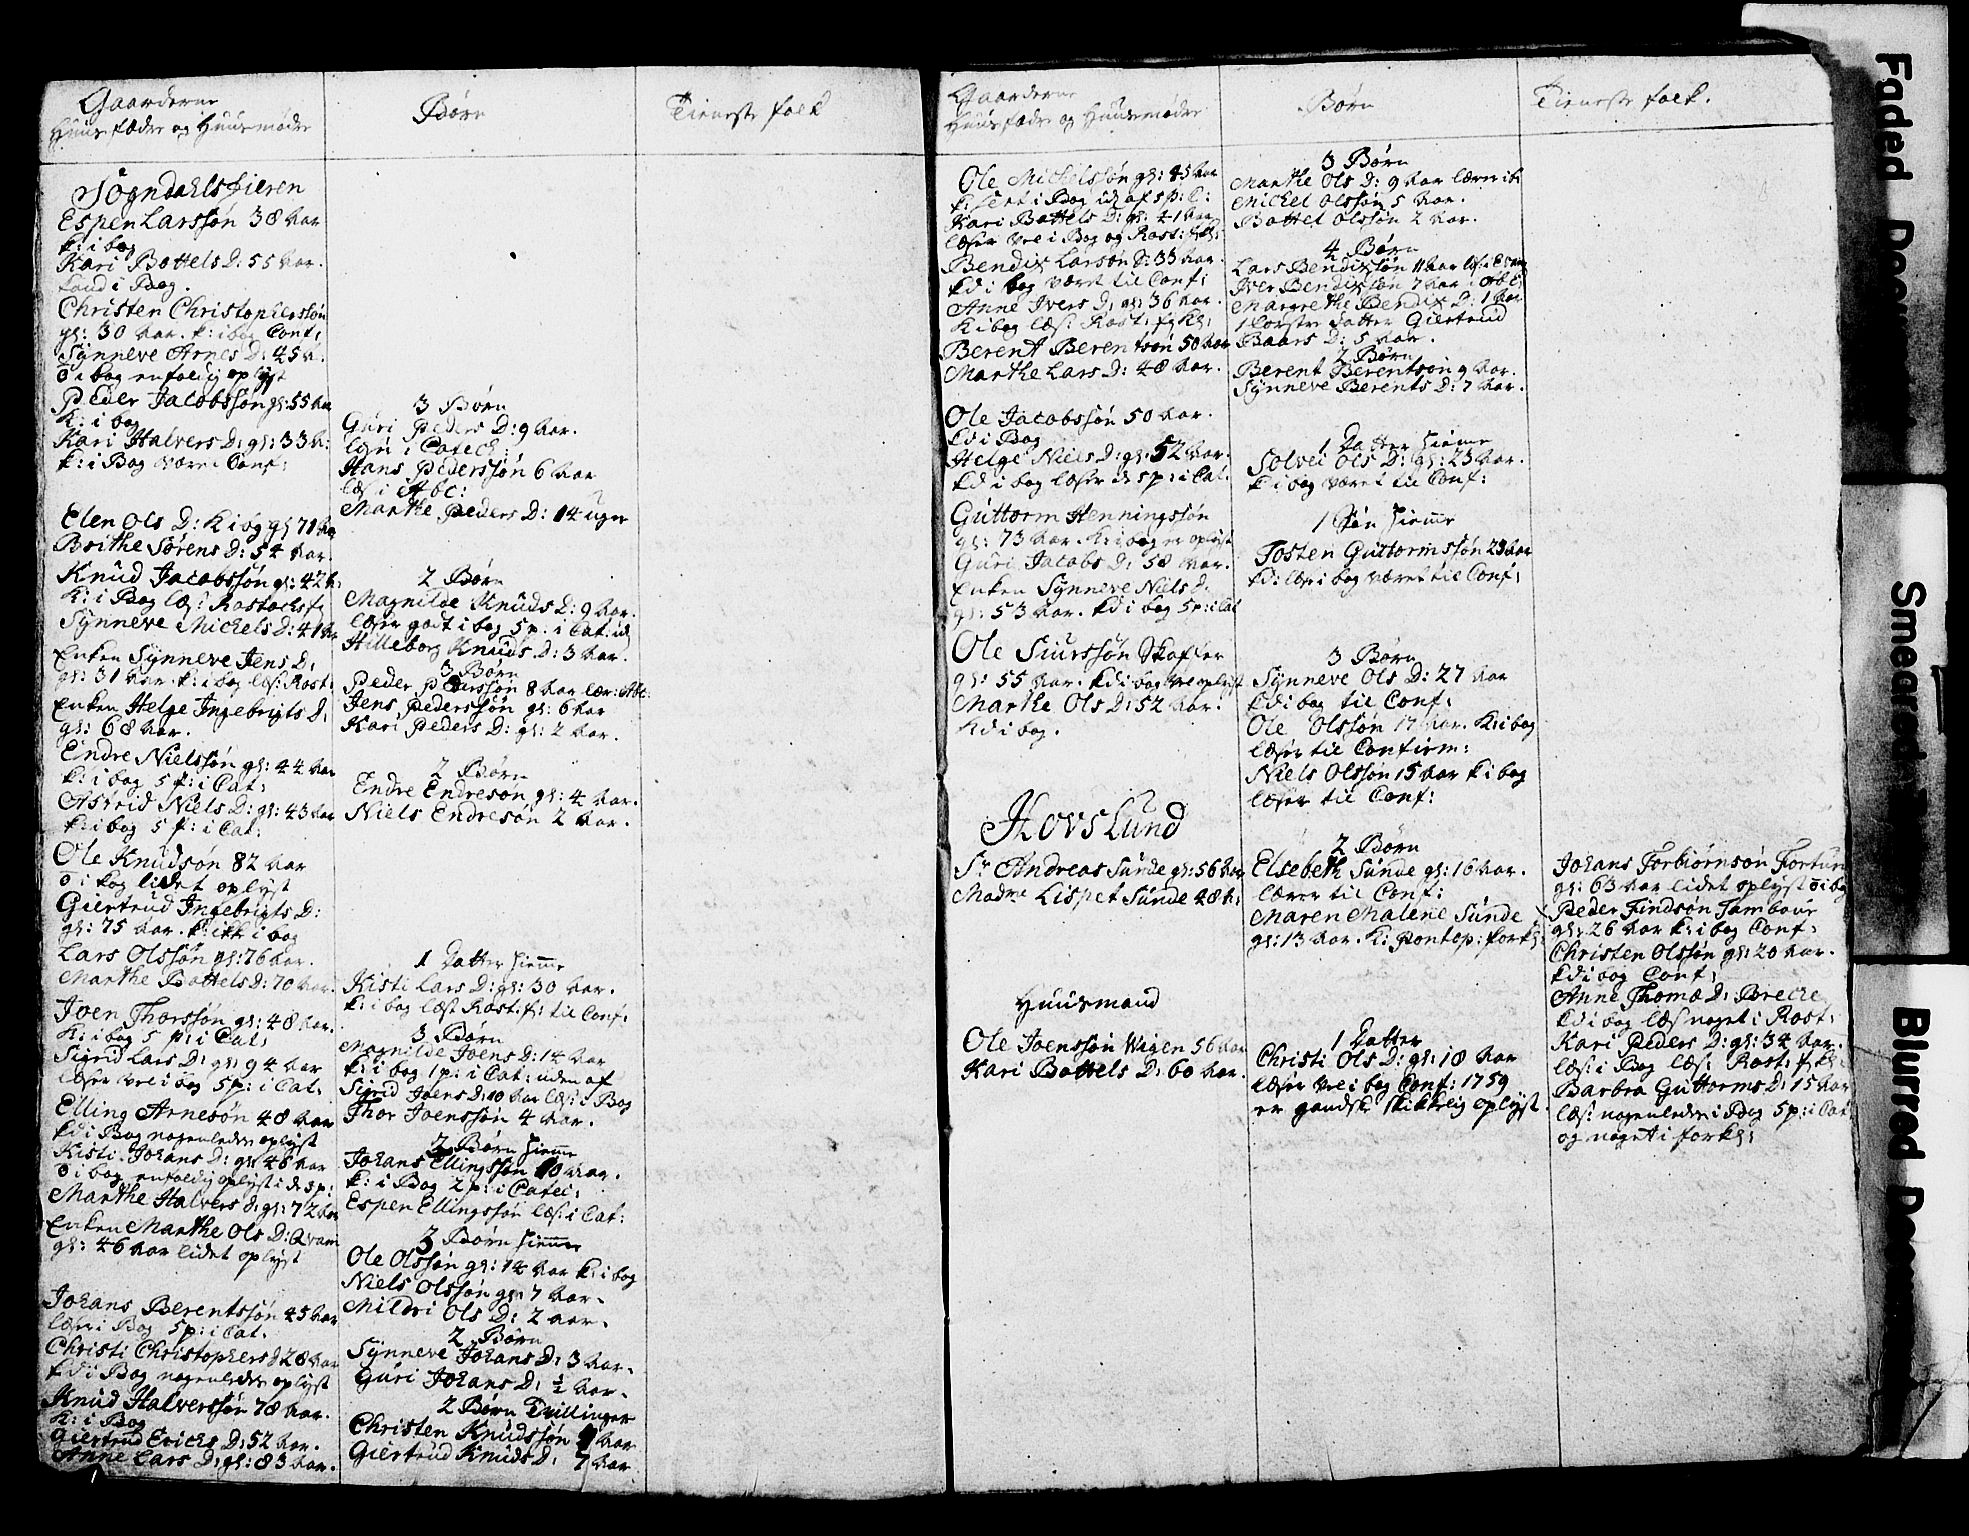 Gaarderne
Huusfædre og Huusmødre
Børn
Tieneste folk
Sogndahlsfieren
Espen Larssøn 38 aar
k: i bog
Kari Bottels D: 55 aar.
kand i Bog.
Christen Christophersøn
gl: 30 aar. k: i bog Conf:
Synneve Arnes D: 45 a.
ō i bog enfoldig oplyst
Peder Jacobssøn gl: 55 aar
K: i bog
Kari Halvers D: gl: 33 a:
k: i Bog være i Conf:
Elen Ols D: K i bog gl 71 aar
Brithe Sørens D: 54 aar.
Knud Jacobssøn gl: 42 a:
K: i Bog læs: Rostochs f
Synneve Michels D: 41 aar
Enken Synneve Jens D:
gl: 31 aar. k: i bog læs: Rost:
Enken Helge Ingebrigts D:
gl: 68 aar.
Endre Nielssøn gl: 44 aar
k: i bog 5 p: i Cat:
Astrid Niels D: gl: 43 aar
k: i bog 5 p: i Cat:
Ole Knudsøn 82 aar
ō i bog lidet oplyst
Giertrud Ingebrigts D:
gl: 75 aar. k: ikk i bog
Lars Olssøn gl: 76 aar.
Marthe Bottels D: 70 aar.
Joen Thorssøn gl: 48 aar.
K: i bog 5 p: i Cat:
Sigrid Lars D: gl: 94 aar
læser vel i bog 5 p: i Cat:
Elling Arnesøn 48 aar
kd i Bog nogenledes oplyst
Kisti Johans D: gl: 46 aar
ō i bog enfoldig oplyst i de 5 p:
Marthe Halvers D: gl: 72 aar
Enken Marthe Ols D: Qvam
gl: 46 aar lidet oplyst
Johans Berentssøn 45 aar
læser i Bog 5 p: i Cat.
Christi Christophers D 28 aar
kd i Bog nogenledes oplyst
Knud Halverssøn 78 aar.
K: i Bog
Giertrud Erichs D: 52 aar.
Anne Lars D: gl: 83 aar.
3 Børn
Guri Peders D: 9 aar.
lær i Catech:
Hans Pederssøn 6 aar
læs i Abc:
Marthe Peders D: 14 uger
2 Børn
Magnilde Knuds D: 9 aar.
læser godt i bog 5 p: i Cat: ud
Hilleborg Knuds D: 3 aar.
3 Børn
Peder Pederssøn 8 aar lær: Abc:
Jens Pederssøn gl: 6 aar
Kari Peders D: gl: 2 aar.
2 Børn
Endre Endresøn gl: 4 aar.
Niels Endresøn 2 aar.
1 Datter hieme
Kisti Lars D: gl: 30 aar.
k: i bog læst Rost: f: til Conf:
3 Børn
Magnilde Joens D: 14 aar
k: i bog 1 p: i Cat: uden af
Sigrid Joens D: 10 aar læs: i Bog
Thor Joenssøn 4 aar.
2 Børn hieme
Johans Ellingssøn 10 aar.
k: i Bog 2 p: i Catec:
Espen Ellingssøn læs: i Cat:
3 Børn hieme
Ole Olssøn gl: 14 aar k: i bog
Niels Olssøn gl: 7 aar.
Mildri Ols D: 2 aar.
2 Børn
Synneve Johans D: 3 aar.
Guri Johans D: ½ aar.
2 Børn Tvillinger
Christen Knudssøn 7 aar
Giertrud Knuds D: 7 aar
Gaarderne
Huusfædre og Huusmødre
Børn
Tieneste folk.
Ole Michelssøn gl: 45 aar
k: lært i Bog ud af 5 p: C:
Kari Bottels D: gl: 41 aar
læser vel i Bog og Rost: fkl:
Bendix Larsøn gl: 33 aar.
kd i bog været til Conf:
Anne Ivers D: gl: 36 aar.
K i bog læs: Rost: f kl:
Berent Berentsøn 50 aar
Marthe Lars D: 48 aar.
Ole Jacobssøn 50 aar.
kd i Bog
Helge Niels D: gl: 52 aar.
kd i bog læser de 5 p: i Cat.
Guttorm Henningssøn
gl: 73 aar. K: i bog er oplyst
Guri Jacobs D: 58 aar.
Enken Synneve Niels D:
gl: 53 aar. kd i bog 5 p: i Cat
Ole Siurssøn
gl: 55 aar. kd i bog vel oplyst
Marthe Ols D: 52 aar.
kd i bog.
Hovslund
Sr Andreas Sunde gl: 56 aar
Madme Lispet Sunde 48 a:
Huusmand
Ole Joenssøn Wigen 56 aar
Kari Bottels D: 60 aar.
3 Børn
Marthe Ols D: 9 aar lærer i b:
Michel Olssøn 5 aar.
Bottel Olssøn 2 aar.
4 Børn
Lars Bendixssøn 11 aar
Iver Bendixsøn 7 aar i Abc:
Margrethe Bendix D: 1 aar
1 Datter Giertrud
Baars D: 5 aar.
2 Børn
Berent Berentsøn 9 aar.
Synneve Berents D: 7 aar.
1 Datter hieme
Solvei Ols D: gl: 23 aar.
k i bog været til Conf:
1 Søn hieme
Tosten Guttormssøn 23 aar
kd: læser i bog været til Conf:
3 Børn
Synneve Ols D: 27 aar
kd i bog til Conf:
Ole Olssøn 17 aar. K: i bog
læser til Confirm:
Niels Olssøn 15 aar k i bog
læser til Conf:
2 Børn
Elsebeth Sunde gl: 16 aar.
lærer til Conf:
Maren Malene Sunde
gl: 13 aar. K: Pontop: forkl:
1 Datter
Christi Ols D: gl: 18 aar
læser vel i bog Conf: 1759
er gandske skikkelig oplyst.
Johans Torbiørnsøn Fortun
gl: 63 aar lidet oplyst ō i bog
Peder Findsøn Tambour
gl: 26 aar k: i bog Conf:
Christen Olssøn gl: 20 aar.
kd i bog Conf:
Anne Thomæ D: Brecke
kd i bog læs noget i Rost:
Kari Peders D: gl: 34 aar.
læs: i Bog læs: Rost: f kl:
Barbra Guttorms D: 15 aar
læs: nogenledes i Bog 5 p: i Cat:
og noget i forkl:
Faded Document
Smeared
Blurred Document